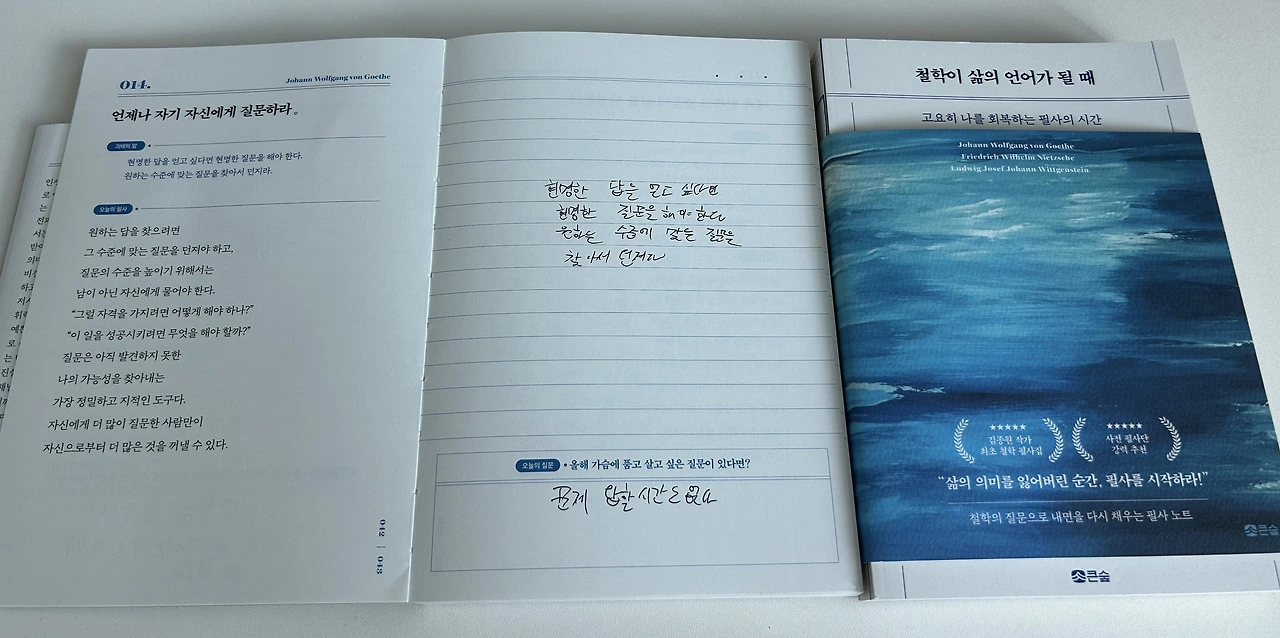 014.
Johann Wolfgang von Goethe
언제나 자기 자신에게 질문하라.
괴테의 말
현명한 답을 얻고 싶다면 현명한 질문을 해야 한다.
원하는 수준에 맞는 질문을 찾아서 던지라.
오늘의 필사
원하는 답을 찾으려면
그 수준에 맞는 질문을 던져야 하고,
질문의 수준을 높이기 위해서는
남이 아닌 자신에게 물어야 한다.
“그럴 자격을 가지려면 어떻게 해야 하나?”
“이 일을 성공시키려면 무엇을 해야 할까?”
질문은 아직 발견하지 못한
나의 가능성을 찾아내는
가장 정밀하고 지적인 도구다.
자신에게 더 많이 질문한 사람만이
자신으로부터 더 많은 것을 꺼낼 수 있다.
042 | 043
현명한 답을 얻고 싶다면
현명한 질문을 해야 한다
원하는 수준에 맞는 질문을
찾아서 던져라
오늘의 질문 • 올해 가슴에 품고 살고 싶은 질문이 있다면?
답할 시간은 없다
철학이 삶의 언어가 될 때
고요히 나를 회복하는 필사의 시간
Johann Wolfgang von Goethe
Friedrich Wilhelm Nietzsche
Ludwig Josef Johann Wittgenstein
★★★★★
김종원 작가
최초 철학 필사집
★★★★★
사전 필사단
강력 추천
“삶의 의미를 잃어버린 순간, 필사를 시작하라!”
철학의 질문으로 내면을 다시 채우는 필사 노트
큰숲
큰숲